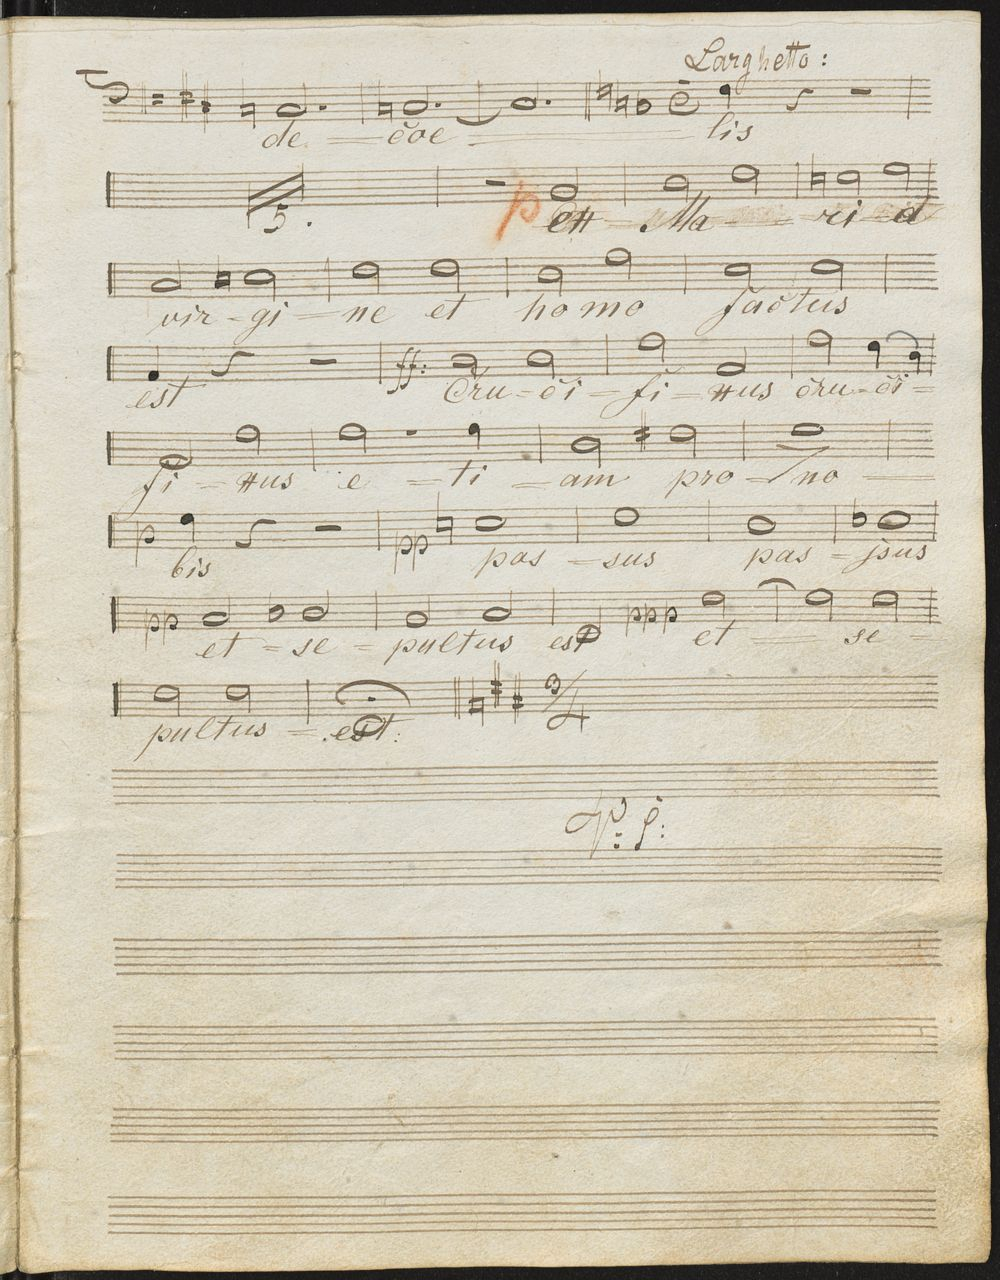 Larghetto:
de - coe - lis
5.
p ex Ma - ri - a
vir - gi - ne et homo factus
est ff: Cru - ci - fi - xus cru - ci -
fi - xus e - ti - am pro - no -
p bis pp pas - sus pas - sus
pp et - se - pultus est ppp et - se -
pultus - est.
3/4
V: S: